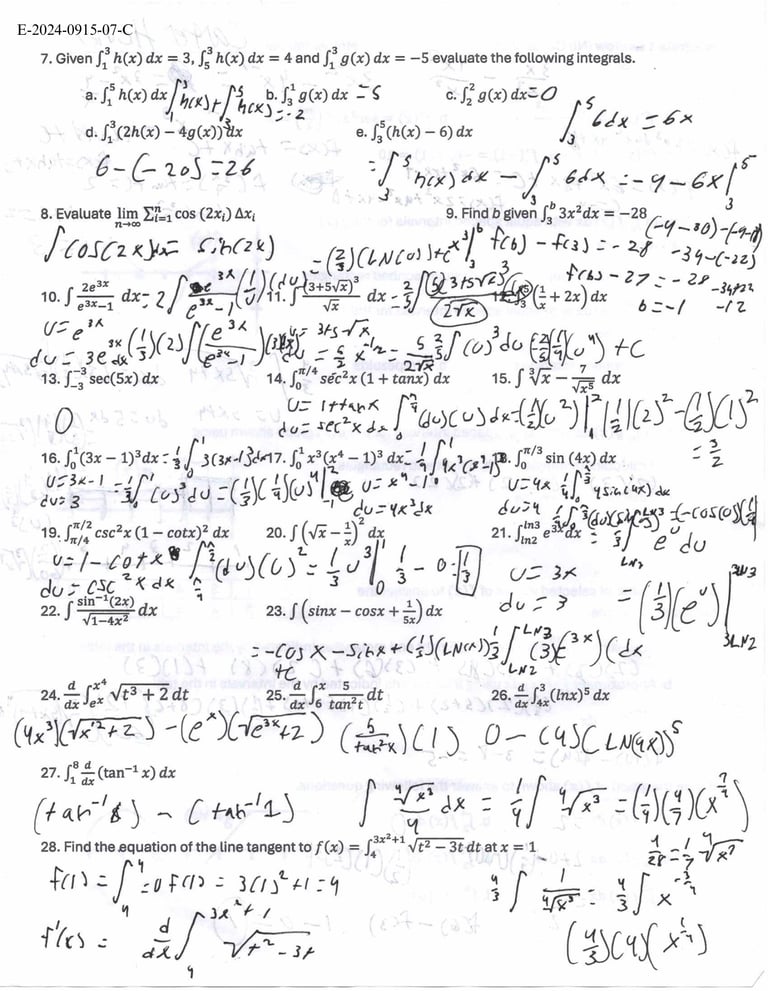 E-2024-0915-07-C
7. Given ∫₁³ h(x) dx = 3, ∫₅³ h(x) dx = 4 and ∫₁³ g(x) dx = −5 evaluate the following integrals.
a. ∫₁⁵ h(x) dx ∫₁³ h(x) + ∫₃⁵ h(x) = -2 b. ∫₃¹ g(x) dx = 5 c. ∫₂² g(x) dx = 0
∫₃⁵ 6dx = 6x
d. ∫₁³(2h(x) − 4g(x)) dx e. ∫₃⁵(h(x) − 6) dx
6 - (-20) = 26 = ∫₃⁵ h(x) dx - ∫₃⁵ 6dx = -4 - 6x |₃⁵
8. Evaluate lim n→∞ Σⁿᵢ₌₁ cos (2xᵢ) Δxᵢ 9. Find b given ∫₃ᵇ 3x²dx = −28
∫ cos(2x)dx = sin(2x) x³ |₃ᵇ f(b) - f(3) = -28
(-4-30) - (-4-18)
-34 - (-22)
-34+22
-12
f(b) - 27 = -28
b = -1
= (2/3)(LN(U)) + C
10. ∫ 2e3x/e3x−1 dx = 2 ∫ 11. ∫ (3+5√x)³/√x dx (1/x + 2x) dx
U = e³ˣ
du = 3e³ˣdx (1/3)(2) ∫ (e³ˣ/e³ˣ-1)
U = 3+5√x
du = 5/2 x^-1/2 = 5/2√x 2/5 ∫ (U)³ du (2/5)(1/4)(U⁴) + C
13. ∫₋₃⁻³ sec(5x) dx 14. ∫₀^π/4 sec²x (1 + tanx) dx 15. ∫ ∛x − 7/√x⁵ dx
0
U = 1+tanx
du = sec²x dx ∫₀^π/4 (du)(U) dx = (1/2)(U²) |₁² (1/2)(2)² - (1/2)(1)²
= 3/2
16. ∫₀¹(3x − 1)³dx = 1/3 ∫₀¹ 3(3x-1)³dx 17. ∫₀¹ x³(x⁴ − 1)³ dx = 1/4 ∫₀¹ 4x³(x⁴-1)³ 18. ∫₀^π/3 sin (4x) dx
U = 3x-1
du = 3 = 1/3 ∫ (U)³ du = (1/3)(1/4)(U)⁴
U = x⁴-1
du = 4x³dx
U = 4x
du = 4
19. ∫π/4^π/2 csc²x (1 − cotx)² dx 20. ∫ (√x − 1/x)² dx 21. ∫ln2^ln3 e³ˣdx = 1/3 ∫ eᵁ du
U = 1-cotx
du = csc²x dx ∫ (du)(U)² = 1/3 U³ |₀¹ 1/3 - 0 = 1/3
U = 3x
du = 3 = (1/3)(eᵁ) | 3LN3 3LN2
22. ∫ sin⁻¹(2x)/√1−4x² dx 23. ∫ (sinx − cosx + 1/5x) dx
= -cosx - sinx + (1/5)(LN(x)) + C
1/3 ∫LN2^LN3 (3)(e³ˣ)(dx
24. d/dx ∫eˣ^x⁴ √t³ + 2 dt 25. d/dx ∫₆ˣ 5/tan²t dt 26. d/dx ∫₄ₓ³ (lnx)⁵ dx
(4x³)(√x¹² + 2) - (eˣ)(√e³ˣ + 2) (5/tan²x)(1) 0 - (4)(LN(4x))⁵
27. ∫₁⁸ d/dx (tan⁻¹ x) dx
(tan⁻¹ 8) - (tan⁻¹ 1) ∫ ⁴√x³/4 dx = 1/4 ∫ ⁴√x³ = (1/4)(4/7)(x^7/4)
4/28 = 1/7 ⁴√x⁷
28. Find the equation of the line tangent to f(x) = ∫₄^3x²+1 √t² − 3t dt at x = 1
f(1) = ∫₄⁴ = 0 f(1) = 3(1)² + 1 = 4
4/3 ∫ 1/⁴√x³ = 4/3 ∫ x^-3/4
f'(x) = d/dx ∫₄^3x²+1 √t² - 3t
(4/3)(4)(x^1/4)